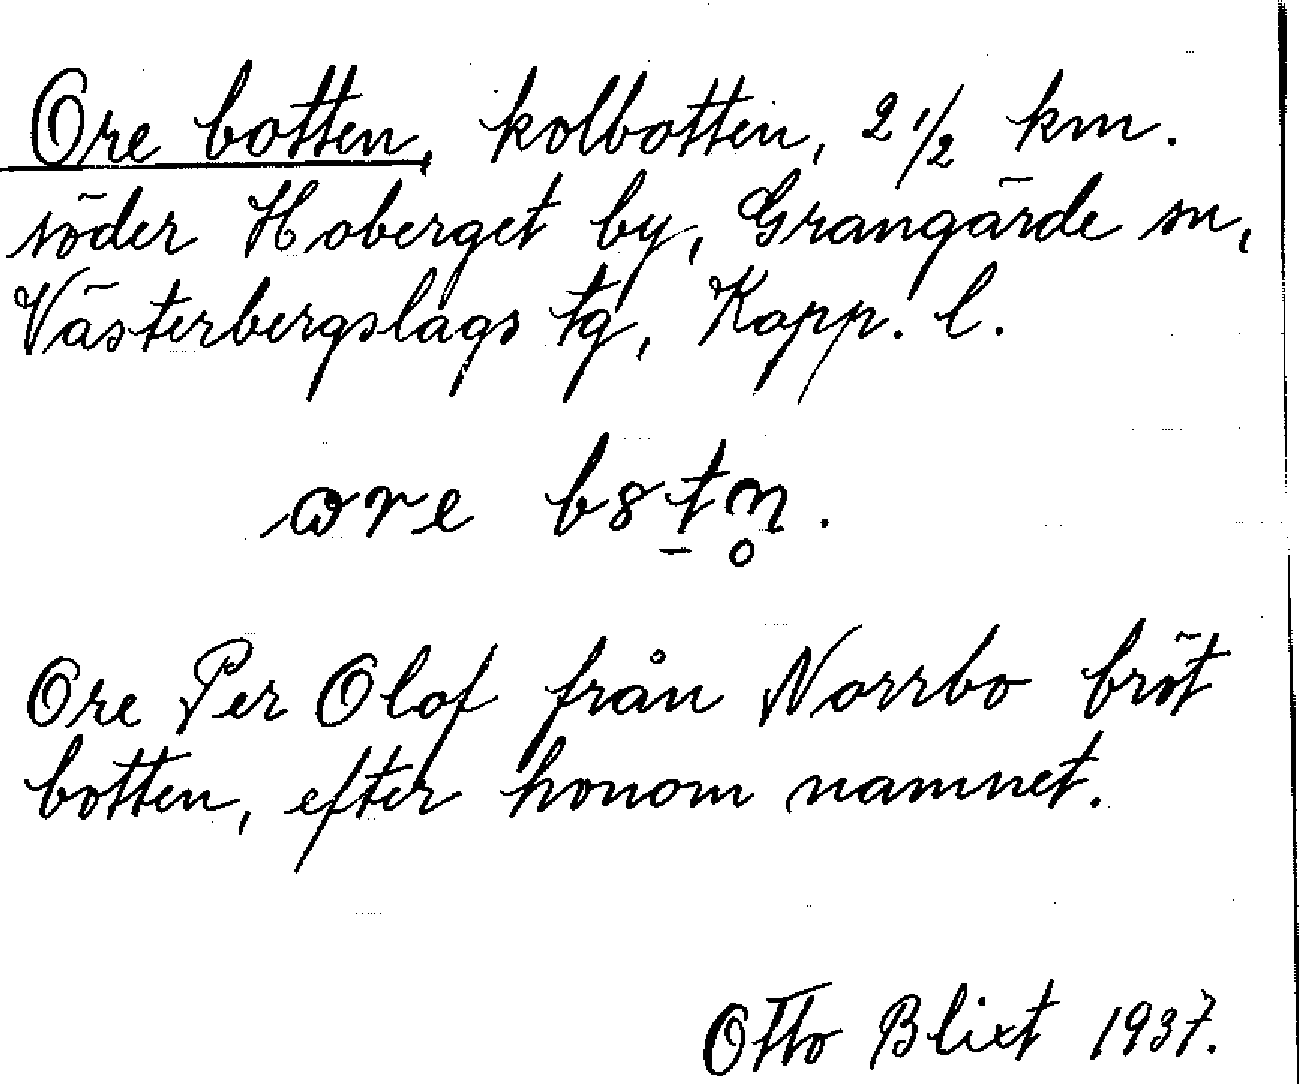 Ore botten, kolbotten, 2 1/2 km.
söder Hoberget by, Grangärde sn,
Västerbergslags tg, Kopp. l.
ωre b8t̠n̥.
Ore Per Olof från Norrbo bröt
botten, efter honom namnet.
Otto Blixt 1937.